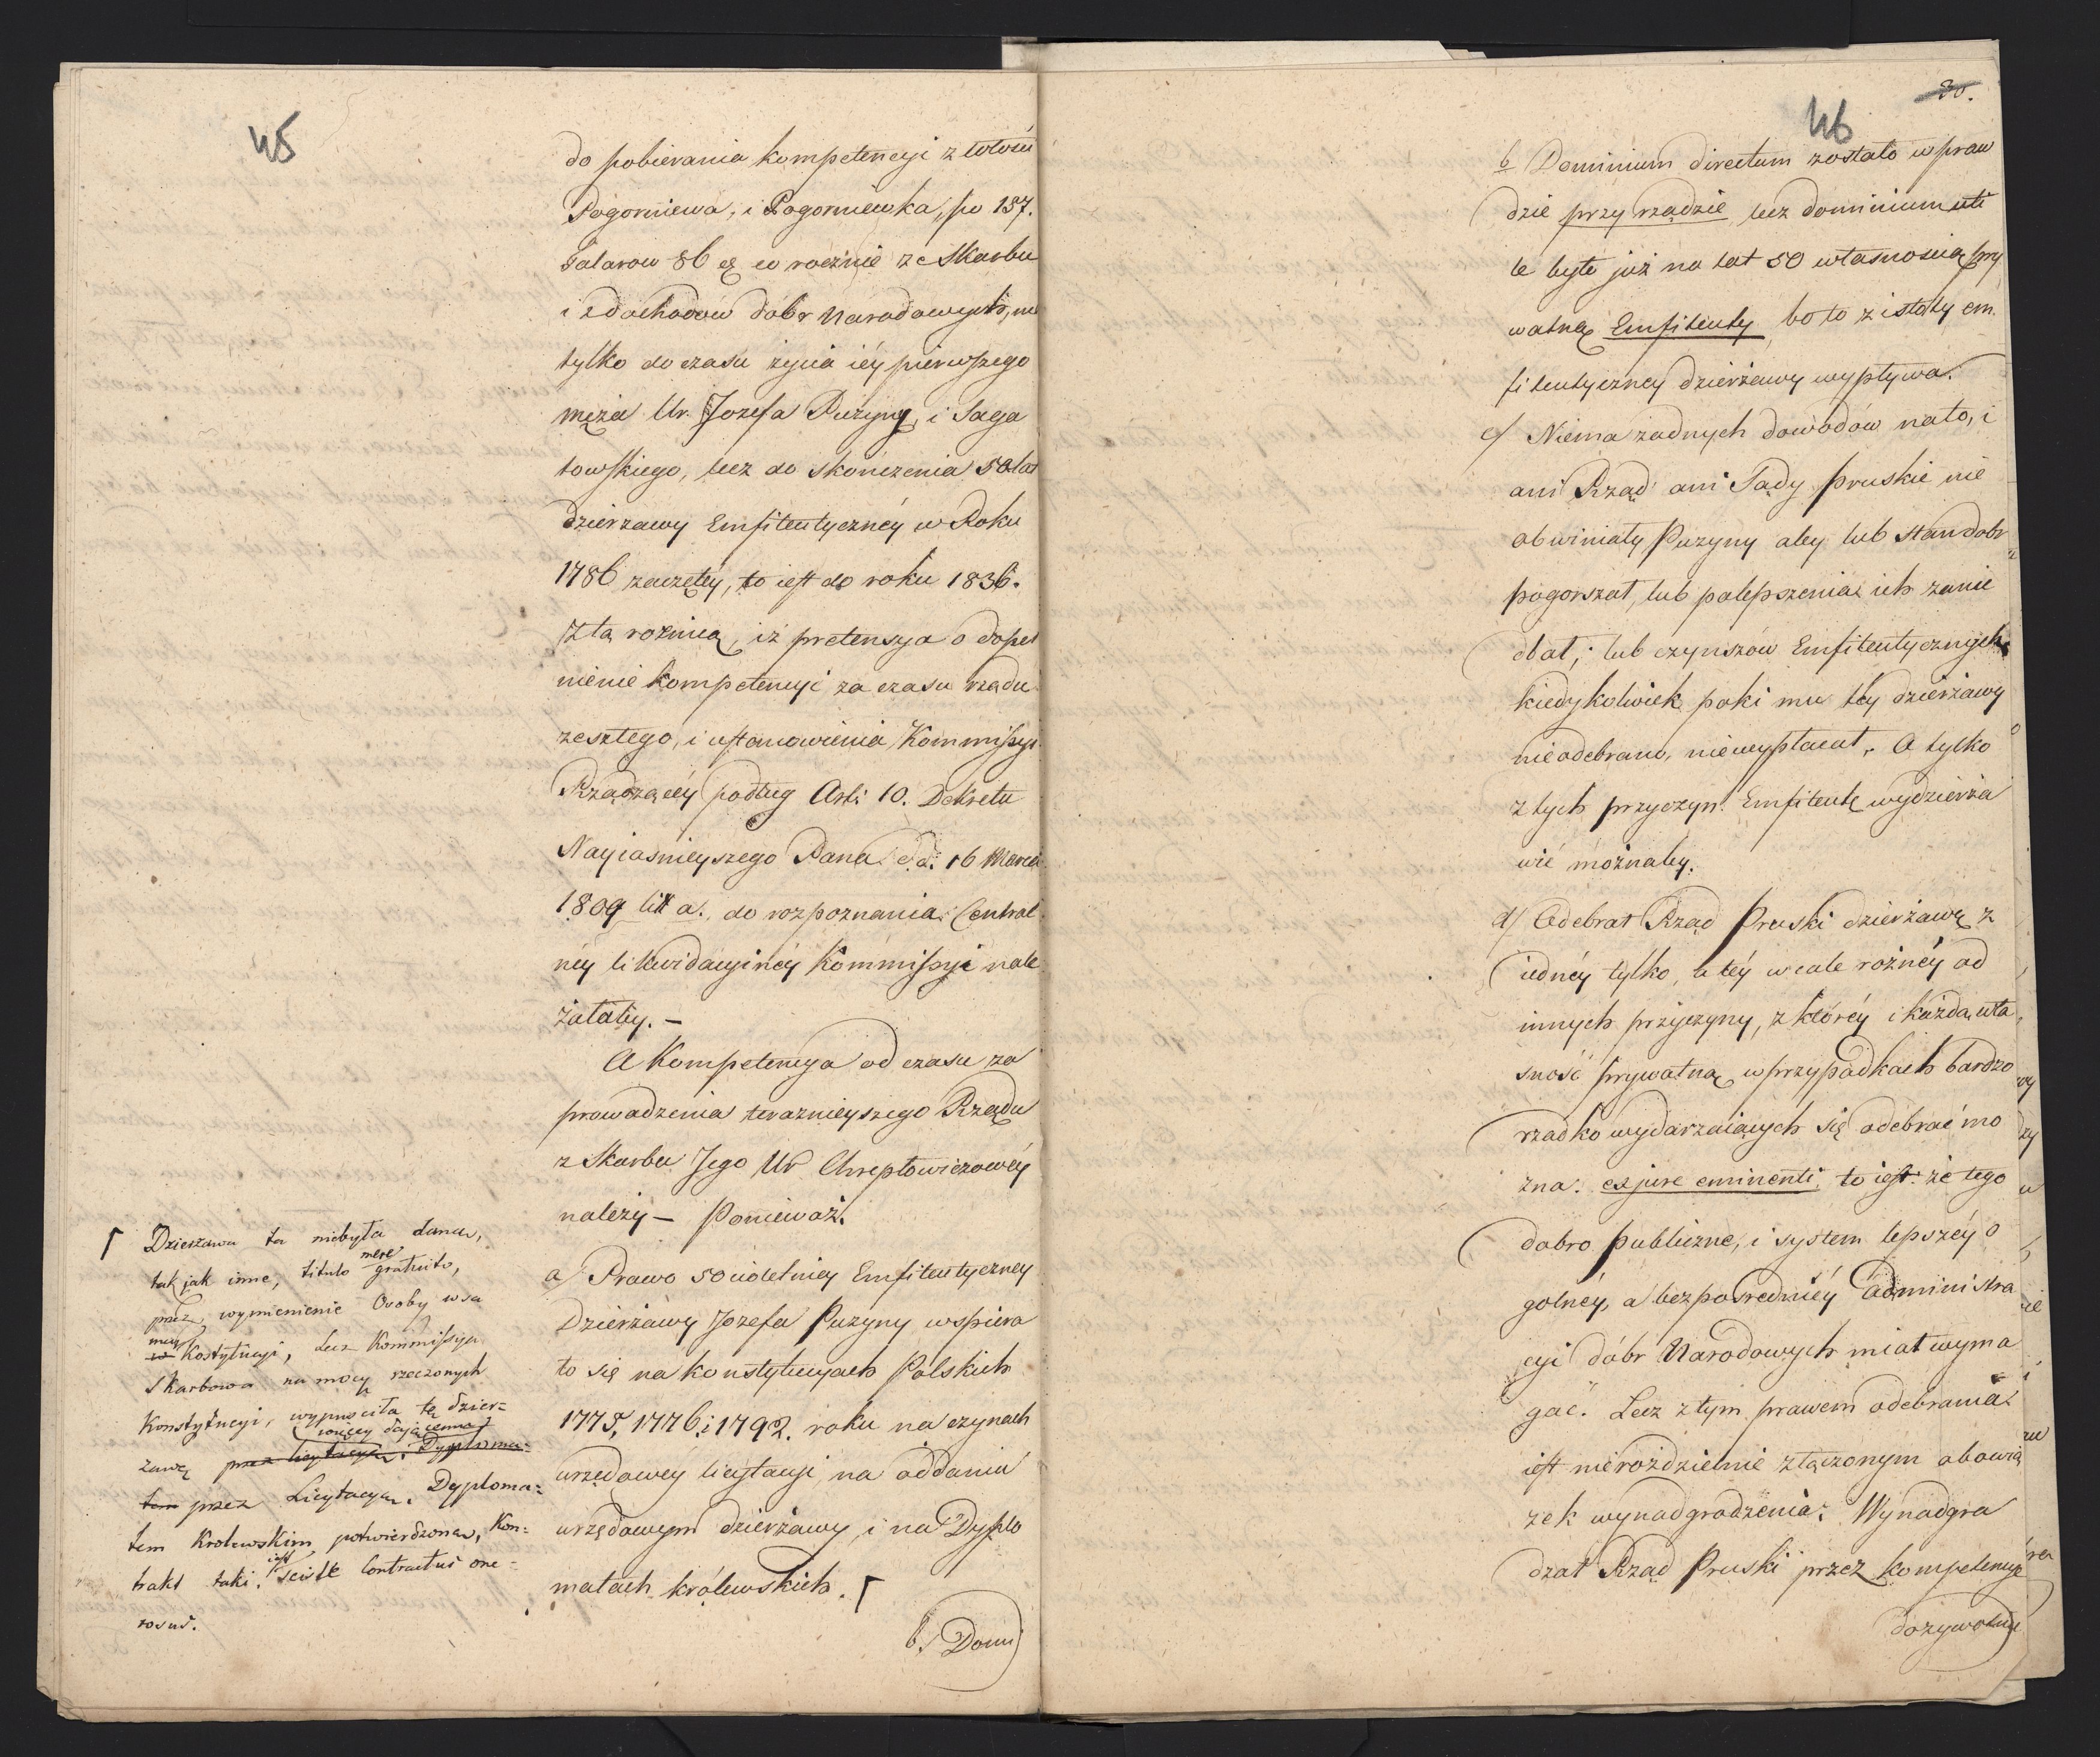 45
do pobierania kompetencyi z
Pogorniewa, i Pogorniewka, po 157.
Talarow 86 rocznie ze Skarbu
i z dochodow dobr Narodowych, nie
tylko do czasu życia iéy pierwszego
męża Ur. Jozefa Puzyny, i Saga
towskiego, lecz do skończenia 50 lat
dzierzawy Emfiteutycznéy w Roku
1786 zaczętéy, to iest do roku 1836.
Ztą rożnicą, iż pretensya o dopeł
nienie kompetencyi za czasu rządu
zeszłego, i ustanowienia Kommissyi
Rządzącéy podług Art: 10. Dekretu
Nayiasnieyszego Pana d.d. 16 Marca
1809 litt a., do rozpoznania Central
néy likwidacyinéy Kommissyi nale
żałaby. —
A Kompetencya od czasu za
prowadzenia teraznieyszego Rządu
z Skarbu Jego Ur Chreptowiczowéy
należy — Ponieważ.
a/ Prawo 50cioletniey Emfiteutyczney
Dzierżawy Jozefa Puzyny wspiera
to się na konstytucyach Polskich
1775, 1776. i 1792. roku na czynach
urzędowey licytacyi, na oddaniu
urzędowym dzierżawy, i na Dyplo
matach królewskich. Γ
b/ Domi
Γ Dzierżawa ta niebyła dana,
tak jak inne, titulo mere gratuito,
przez wymienienie Osoby w sa
mey Kostytucyi, Lecz Kommissya
Skarbowa na mocy rzeczonych
Konstytucyi, wypusciła tę dzier=
więcey dającemu
żawę przez licytacyą, Dyploma=
tem przez Licytacyą. Dyploma=
tem Krolewskim potwierdzoną, Kon=
trakt taki iest scisle Contractus one=
rosus.
30.
46
b Dominium directum zostało wpraw
dzie przy rządzie, lecz dominium uti
le było już na lat 50 własnoscią pry
watną Emfiteuty, bo to z istoty em
fiteutyczney dzierżawy wypływa.
c/ Niema żadnych dowodów na to, i
ani Rząd ani Sądy pruskie nie
obwiniały Puzyny aby lub stan dobr
pogorszał, lub polepszenia ich zanie
dbał, lub czynszów Emfiteutycznych
kiedykolwiek poki mu téy dzierżawy
nieodebrano, niewypłacał. A tylko
z tych przyczyn Emfiteutę wydzierża
wić możnaby.
d/ Odebrał Rząd Pruski dzierżawę z
iednéy tylko, a téy wcale rożnéy od
innych przyczyny, z któréy i każdą wła
sność prywatną w przypadkach bardzo
rzadko wydarzaiących się odebrać mo
żna. ex jure eminenti to iest że tego
dobro publiczne, i system lepszéy o
gólnéy, a bezpośredniéy administra
cyi dóbr Narodowych miał wyma
gać. Lecz z tym prawem odebrania
iest nierozdzielnie złączonym obowią
zek wynadgrodzenia. Wynadgra
dzał Rząd Pruski przez kompetencye
dożywotnie